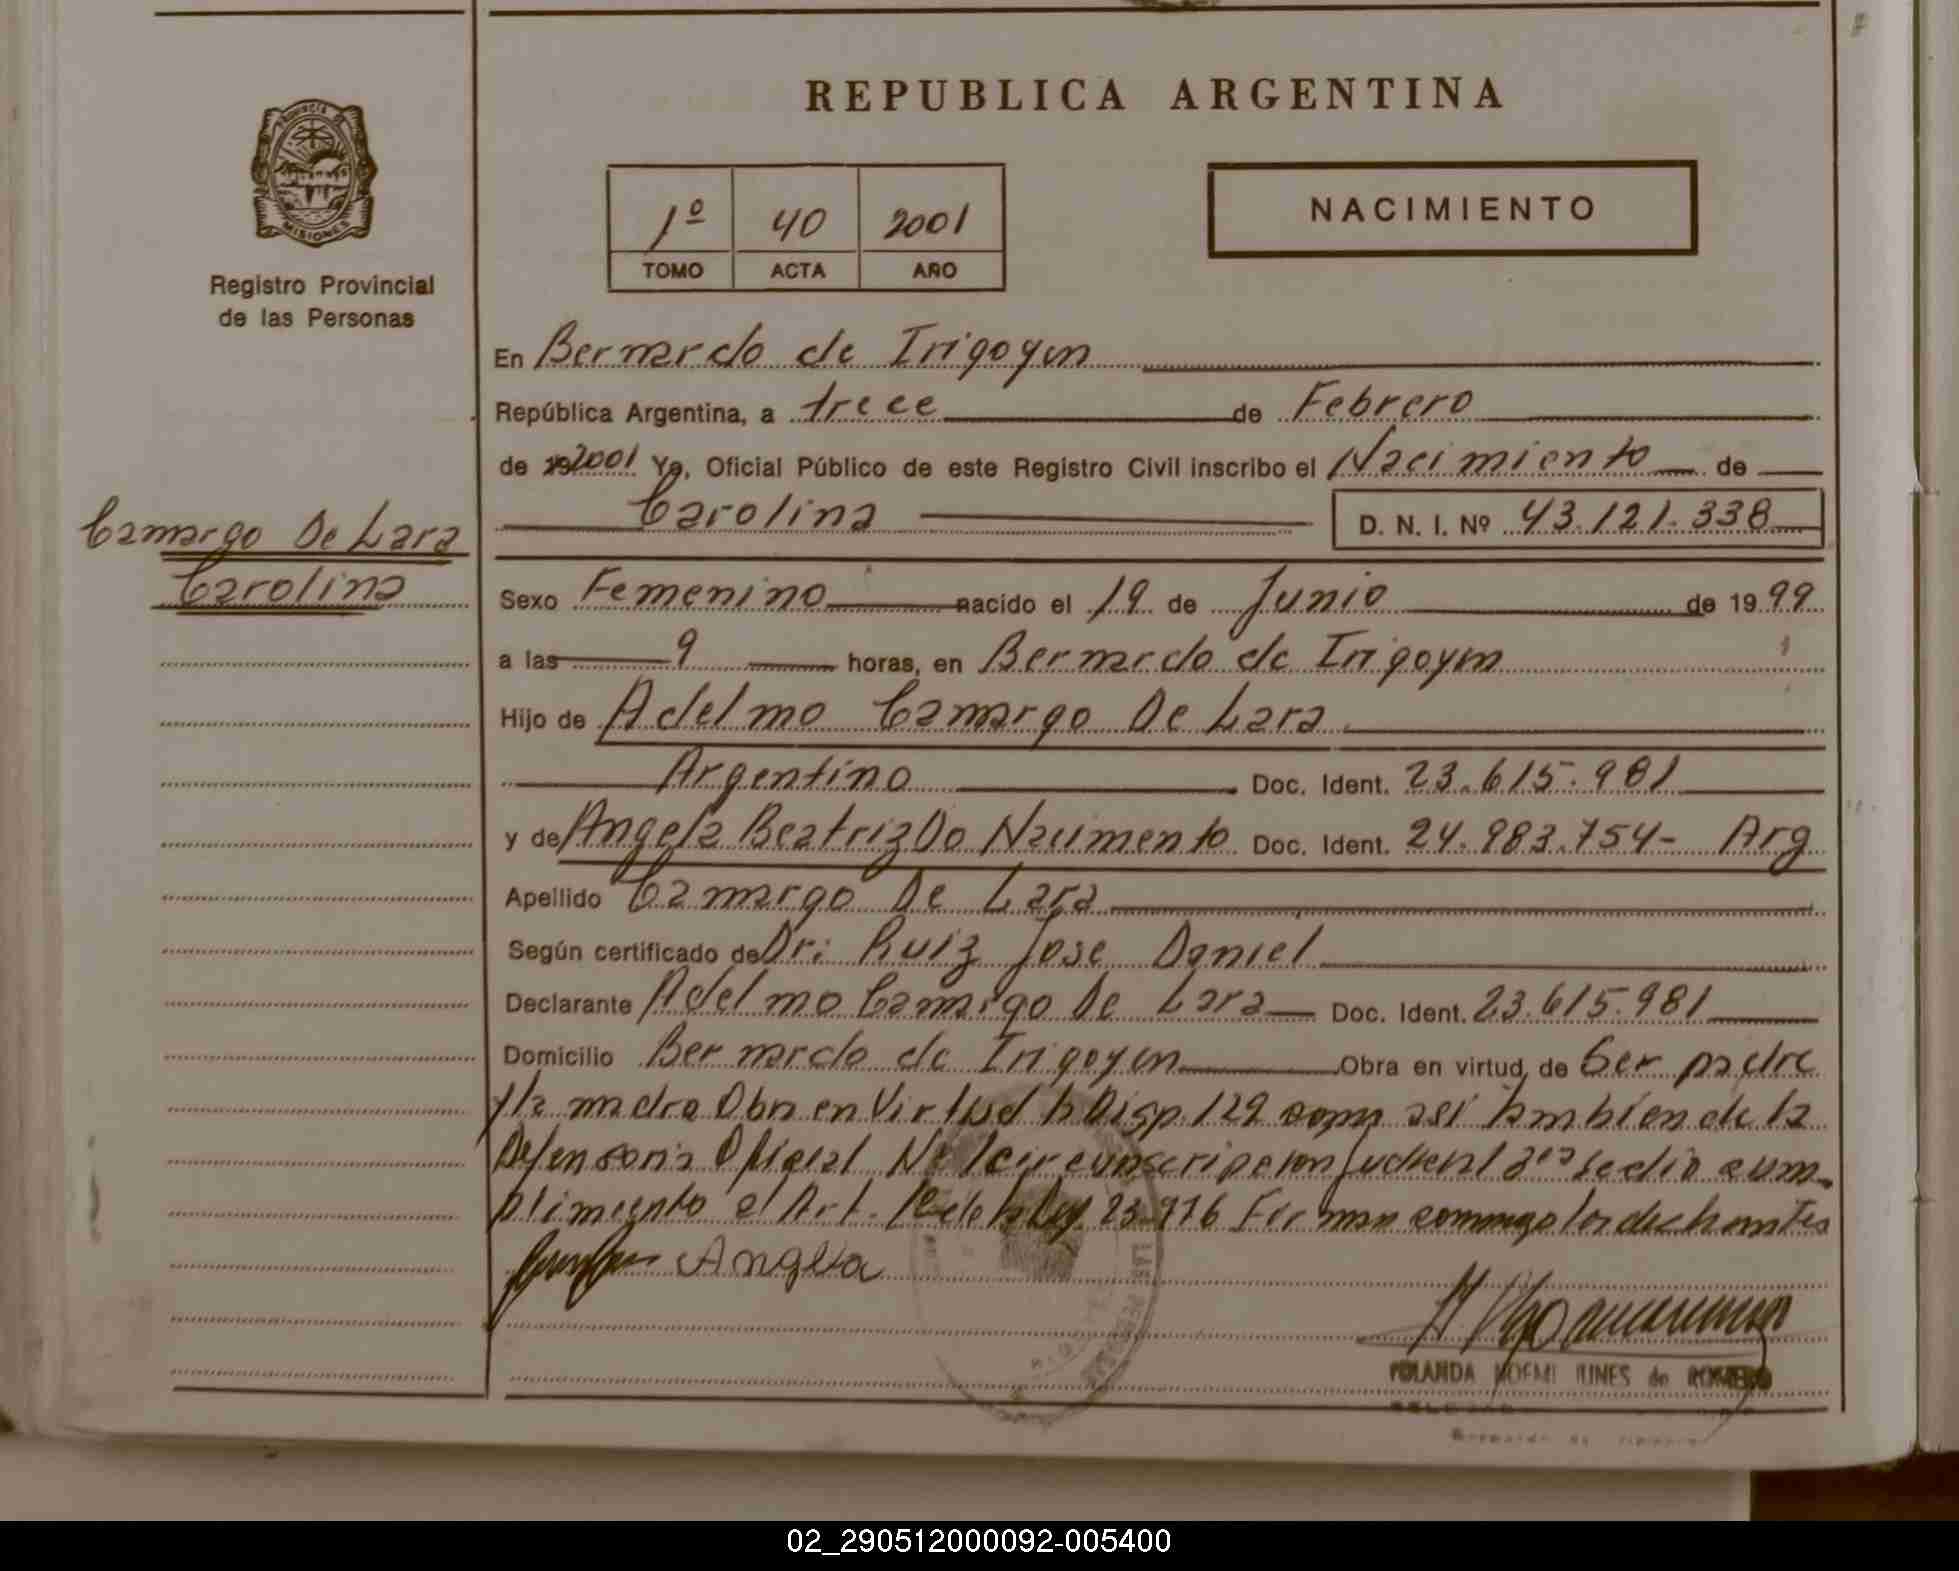 REPUBLICA ARGENTINA
PROVINCIA DE
MISIONES
Registro Provincial
de las Personas
1º 40 2001
TOMO ACTA AÑO
NACIMIENTO
En Bernardo de Irigoyen
República Argentina, a trece de Febrero
de 19 2001 Yo, Oficial Público de este Registro Civil inscribo el Nacimiento de
Carolina D. N. I. Nº 43.121.338
Camargo De Lara
Carolina
Sexo Femenino nacido el 19 de Junio de 1999
a las 9 horas, en Bernardo de Irigoyen
Hijo de Adelmo Camargo De Lara
Argentino Doc. Ident. 23.615.981
y de Angela Beatriz Do Nacimento Doc. Ident. 24.983.754- Arg
Apellido Camargo De Lara
Según certificado de Dr: Ruiz Jose Daniel
Declarante Adelmo Camargo De Lara Doc. Ident. 23.615.981
Domicilio Bernardo de Irigoyen Obra en virtud de Ser padre
y la madre Obra en Virtud la Disp. 129 como asi tambien de la
Defensoria Oficial Nº 1 circunscripcion Judicial se dio cum-
plimiento al Art. de la Ley 23.776 Firman conmigo los
Angela
YOLANDA NOEMI de ROMERO
02_290512000092-005400